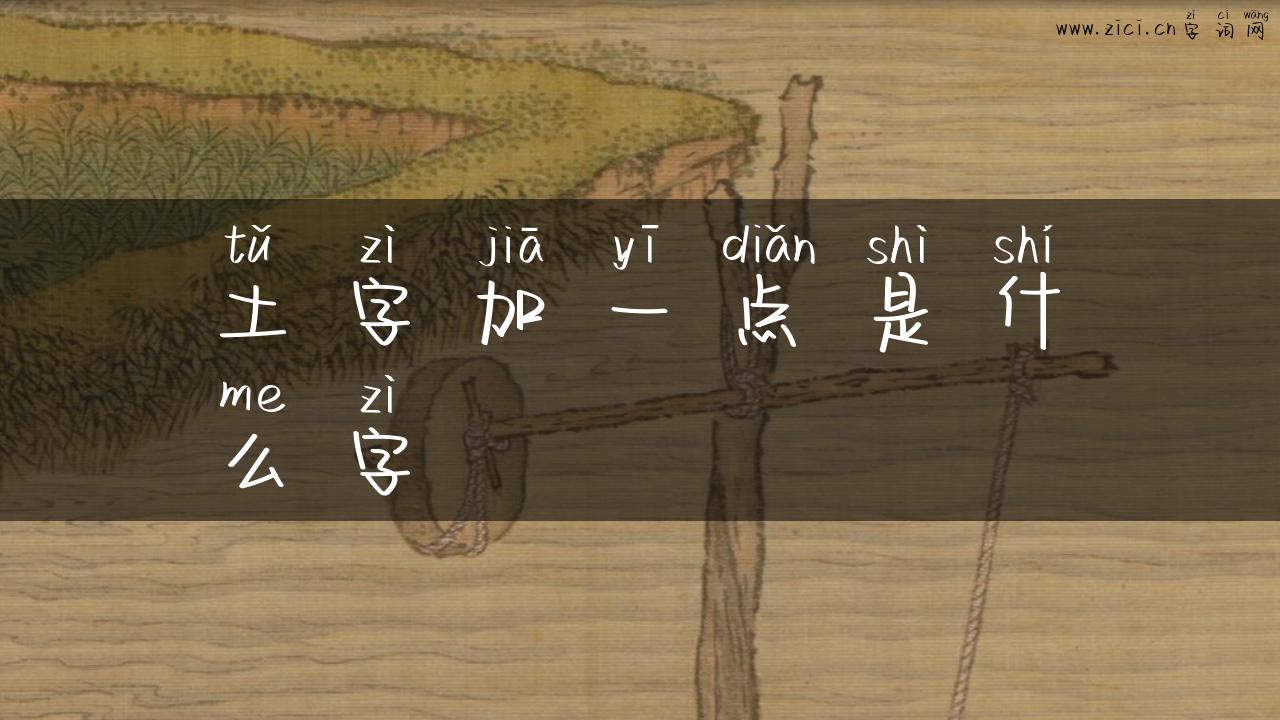 zì cí wǎng
www.zici.cn 字 词 网
tǔ zì jiā yī diǎn shì shí
土 字 加 一 点 是 什
me zì
么 字